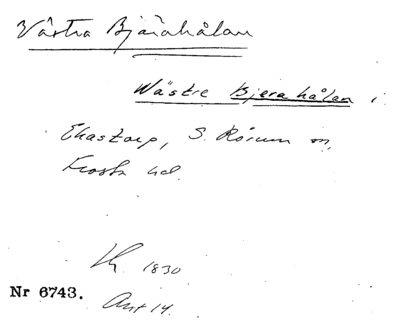 Västra Bjärahålan
Wästre Bjera hålan i
Ekastorp, S. Rörum sn,
Frosta hd.
1830
Nr 6743.
Akt 14.